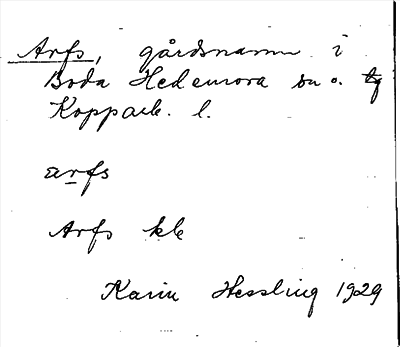 Arfs, gårdsnamn i
Boda Hedemora sn o. tg
Kopparb. l.
arfs
Arfs kb
Karin Hessling 1929